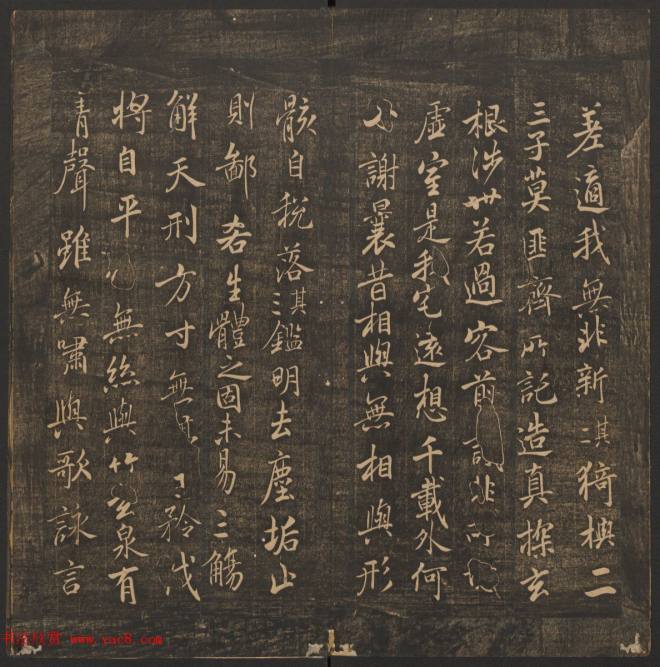 差適我無非新其二猗與二
三子莫匪齊所託造真探玄
根涉世若過客前識非所期
虛室是我宅遠想千載外何
必謝曩昔相與無相與形
骸自稅落其三鑑明去塵垢止
則鄙吝生體之固未易三觴
解天刑方寸無主矜伐
將自平無絲與竹玄泉有
清聲雖無嘯與歌詠言
书法欣赏 www.yac8.com